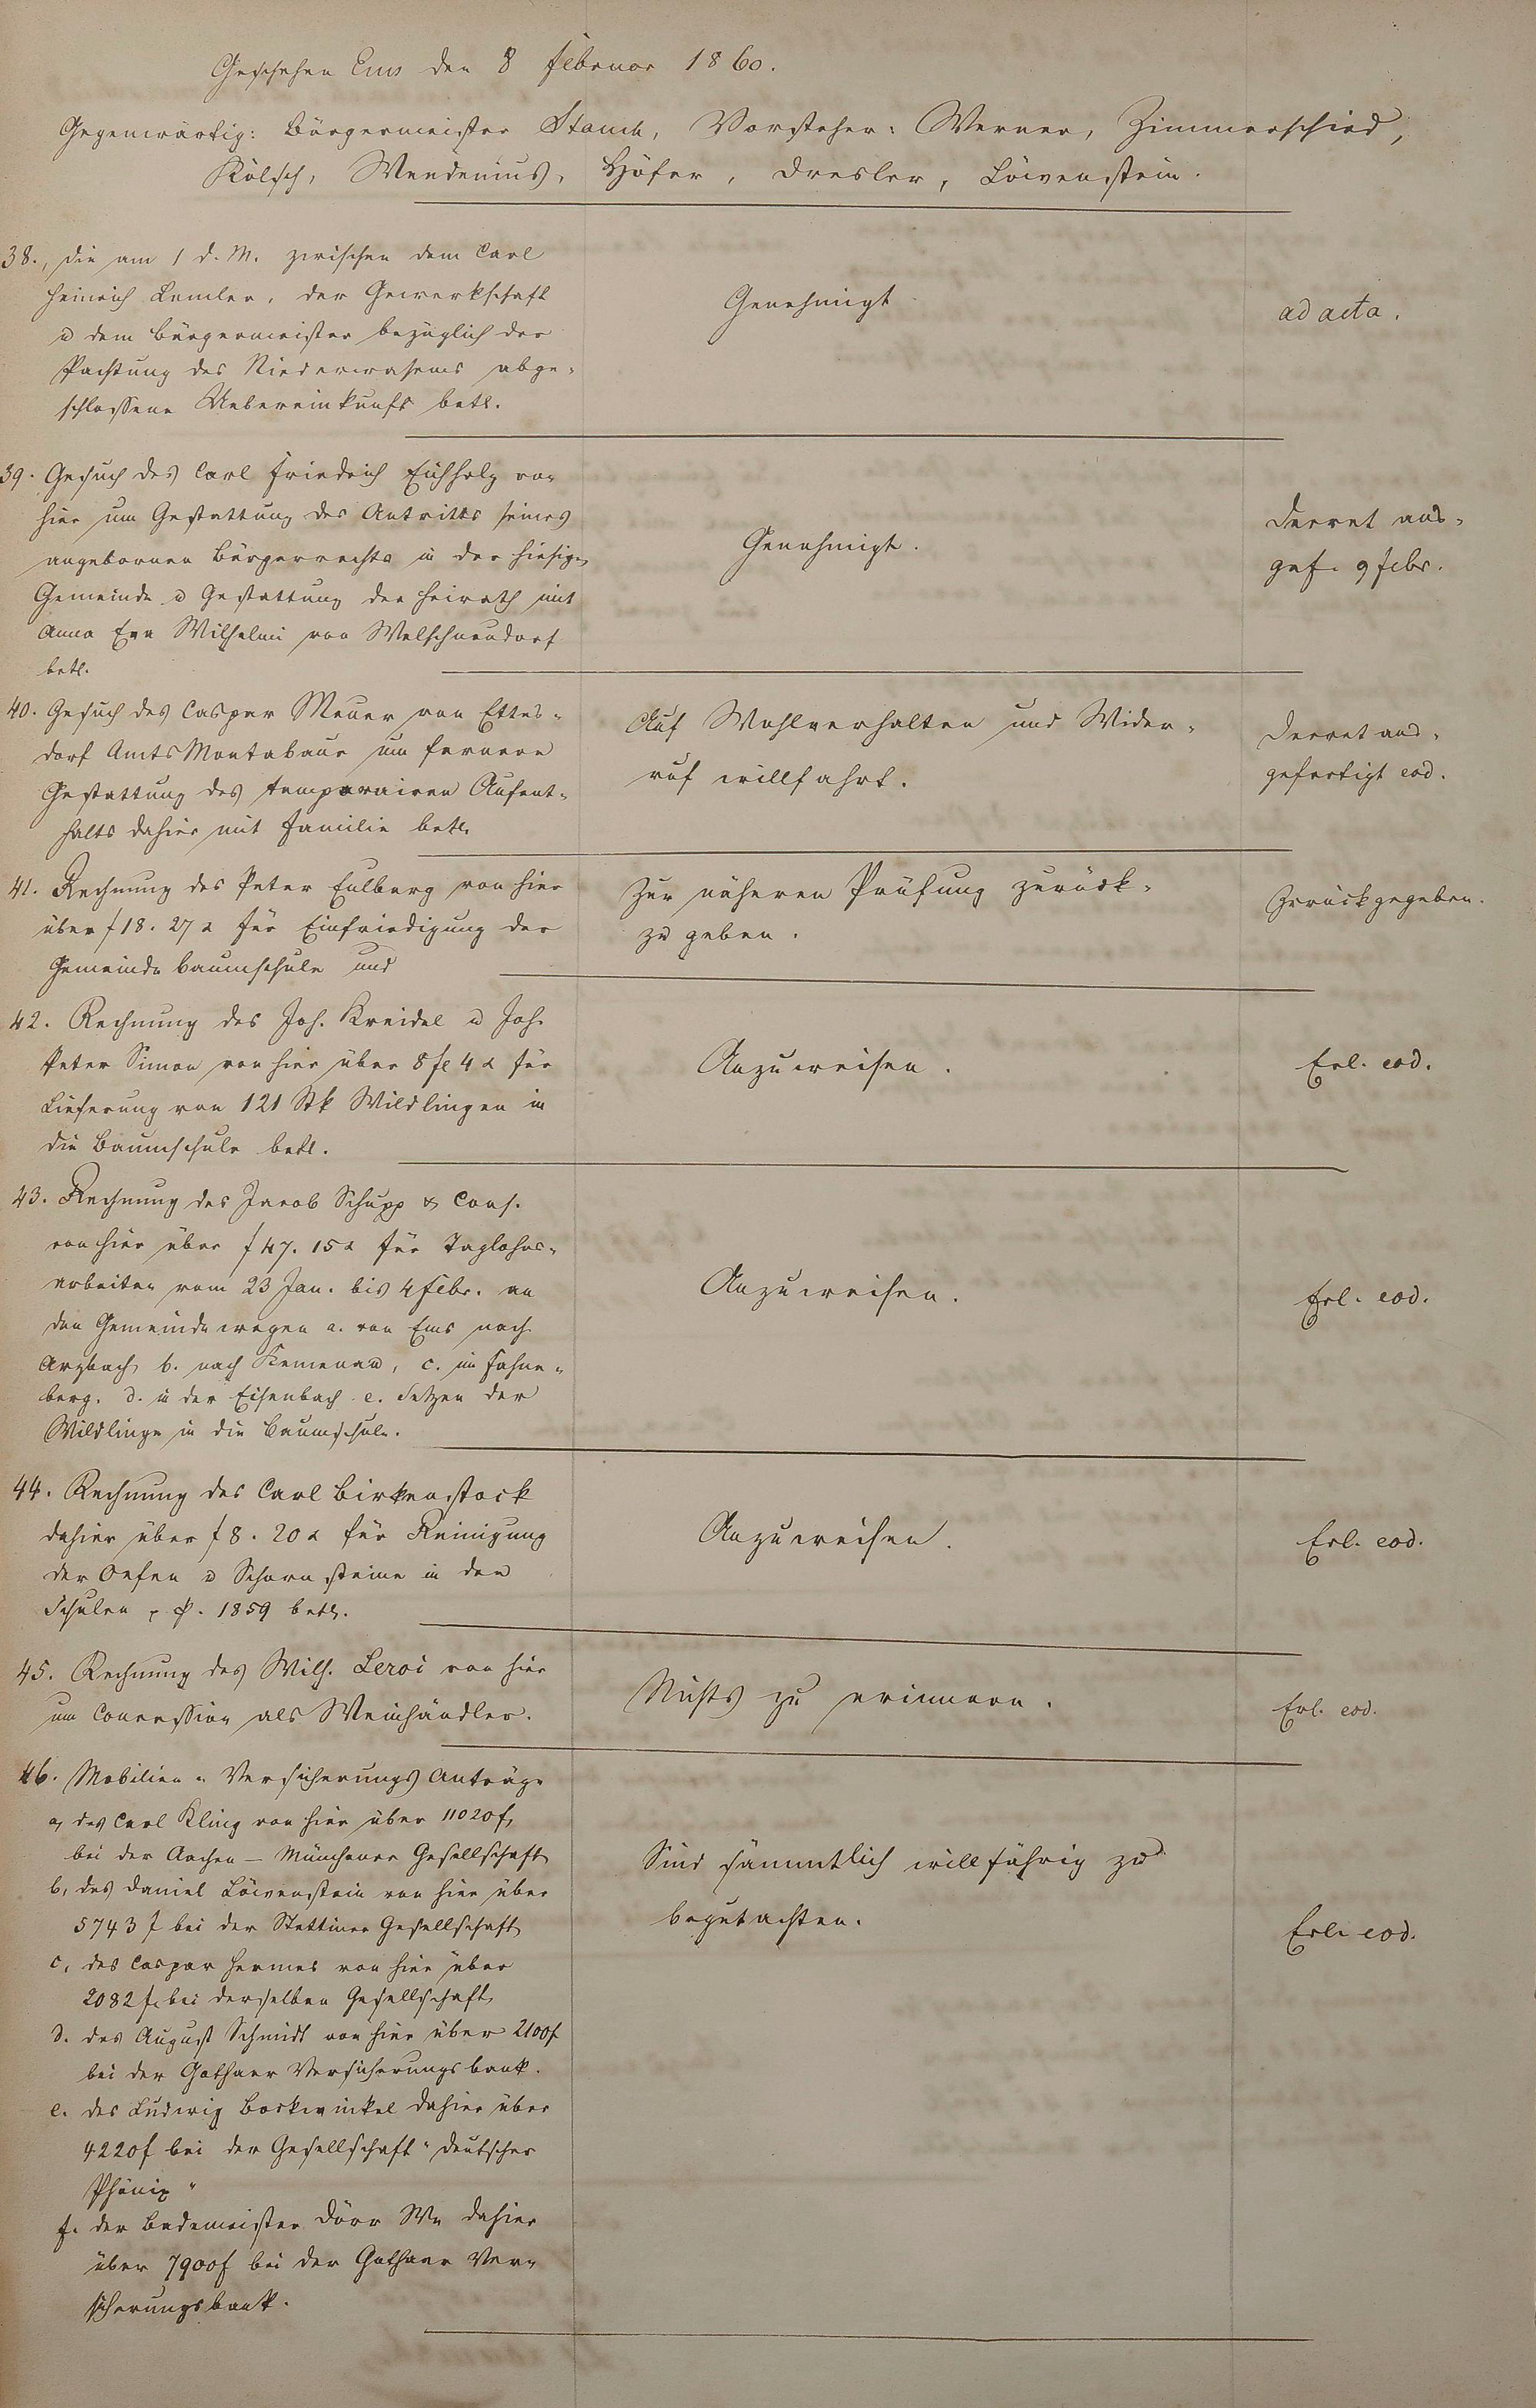 Geschehen Ems den 8 Februar 1860.
Gegenwärtig: Bürgermeister Stauch, Vorsteher: Werner, Zimmerschied,
Kölsch, Wendenius, Höfer, Dresler, Löwenstein.
38., die am 1 d. M. zwischen dem Carl
Heinrich Lemler, der Gewerkschaft
u dem Bürgermeister bezüglich der
Pachtung des Niederwasens abge-
schlossene Uebereinkunft betr.
Genehmigt
ad acta.
39. Gesuch des Carl Friedrich Eichholz von
hier um Gestattung des Antritts seines
angebornen Bürgerrechts in der hiesigen
Gemeinde u Gestattung der Heirath mit
Anna Eva Wilhelmi von Welschneudorf
betr.
Genehmigt.
Decret aus-
gef. 9 Febr.
40. Gesuch des Caspar Meuer von Ettes-
dorf Amts Montabaur um fernere
Gestattung des temporairen Aufent-
halts dahier mit Familie betr.
Auf Wohlverhalten und Wider-
ruf willfahrt.
Decret aus-
gefertigt eod.
41. Rechnung des Peter Eulberg von hier
über f 18. 27 x für Einfriedigung der
Gemeinde Baumschule und
Zur näheren Prüfung zurück-
zu geben.
Zurückgegeben.
42. Rechnung des Joh. Kreidel u Joh.
Peter Simon von hier über 8 fl 4 x für
Lieferung von 121 Stk Wildlingen in
die Baumschule betr.
Anzuweisen.
Erl. eod.
43. Rechnung des Jacob Schupp & Cons.
von hier über f 47. 15 x für Taglohns-
arbeiten vom 23 Jan. bis 4 Febr. an
den Gemeindewegen a. von Ems nach
Arzbach, b. nach Kemenau, c. im Fahne-
berg. d. in der Eisenbach e. Setzen der
Wildlinge in die Baumschule.
Anzuweisen.
Erl. eod.
44. Rechnung des Carl Birkenstock
dahier über f 8. 20 x für Reinigung
der Oefen u Schornsteine in den
Schulen p. 1859 betr.
Anzuweisen.
Erl. eod.
45. Rechnung des Wilh. Leroi von hier
um Concession als Weinhändler.
Nichts zu erinnern.
Erl. eod.
46. Mobilien-Versicherungs Anträge
a, des Carl Kling von hier über 11020 f,
bei der Aachen - Münchener Gesellschaft,
b, des Daniel Löwenstein von hier über
5743 f bei der Stettiner Gesellschaft,
c, des Caspar Hermes von hier über
2082 f. bei derselben Gesellschaft,
d. des August Schmidt von hier über 2100 f
bei der Gothaer Versicherungsbank.
e. des Ludwig Borkwinkel dahier über
4220 f bei der Gesellschaft "Deutscher
Phönix"
f. der Bademeister Dörr We dahier
über 7900 f bei der Gothaer Ver-
sicherungsbank.
Sind sämmtlich willfährig zu
begutachten.
Erl. eod.